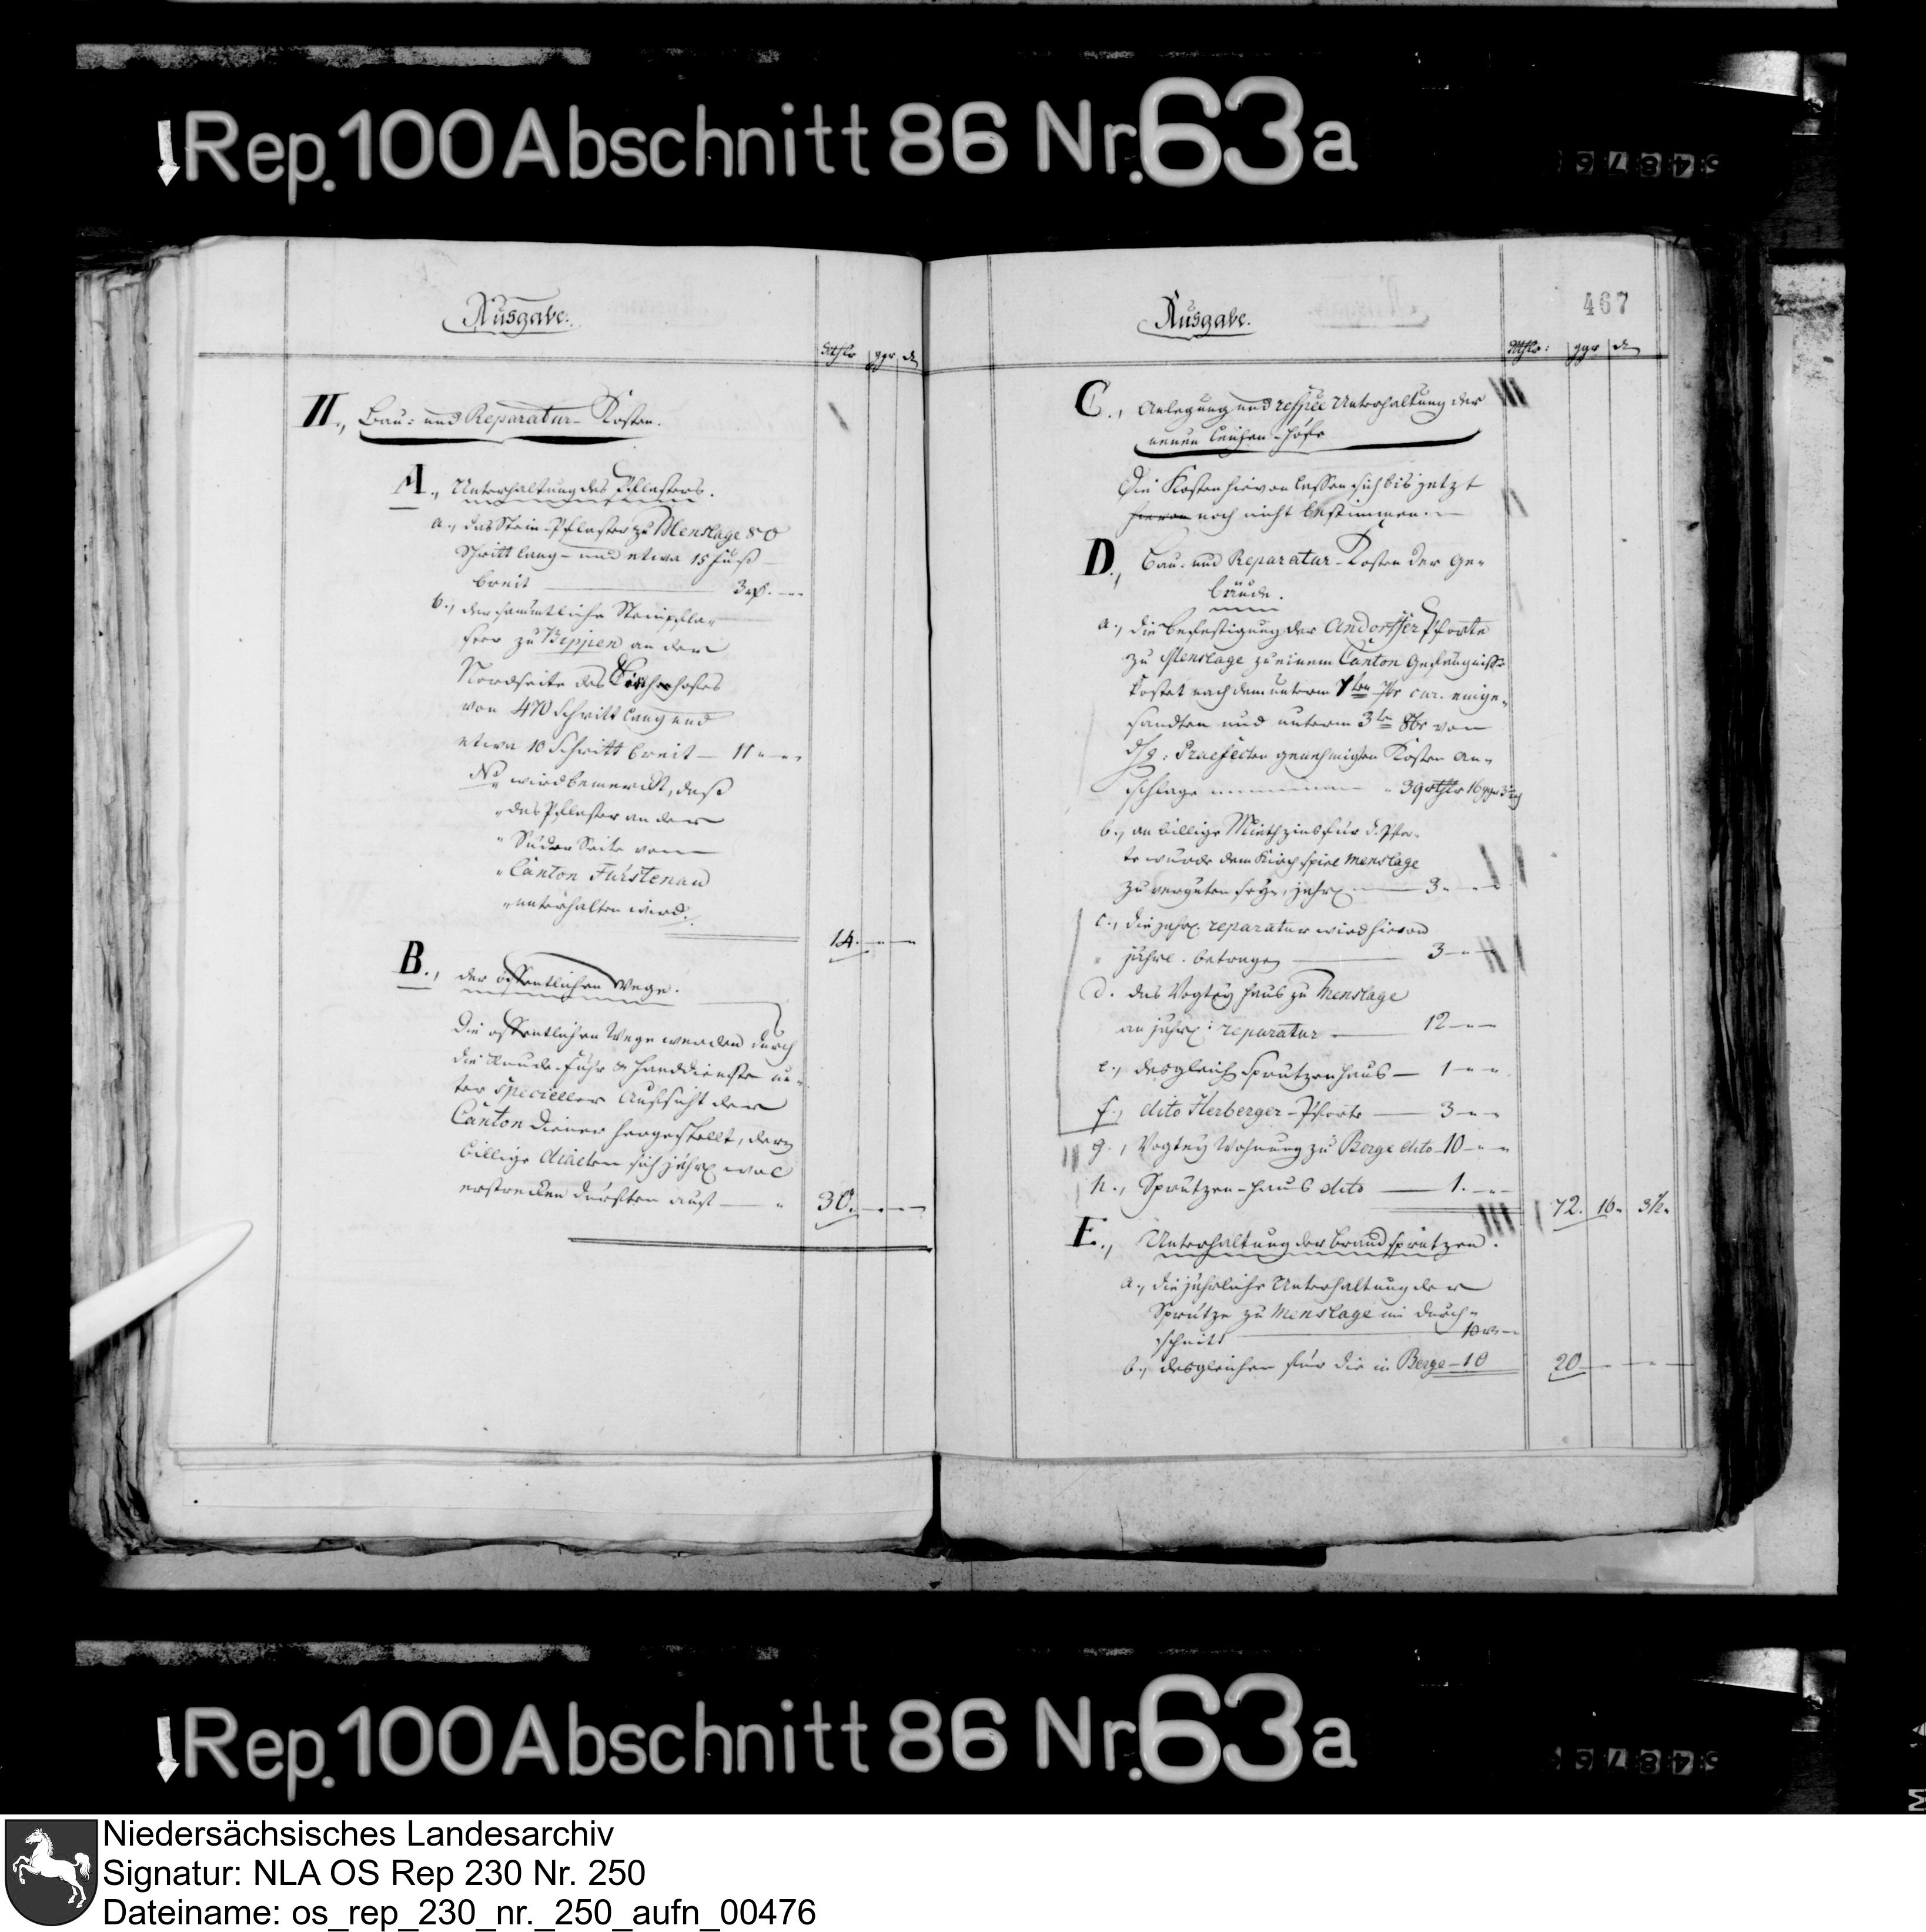 Rep. 100 Abschnitt 86 Nr. 63a
Ausgabe.
Rthlr ggr d
II., Bau- und Reparatur-Kosten.
A., Unterhaltung des Pflasters.
a., das Stein-Pflaster zu Menslage 80
Schritt lang- und etwa 15 Fuß
breit — 3
b., der sammtliche Steinpfla-
ster zu Bippen an der
Nordseite des Kirchhofes
von 470 Schritt lang und
etwa 10 Schritt breit — 11 " — "
NB wird bemerckt, daß
" das Pflaster an der
" Süder Seite vom
" Canton Furstenau
" unterhalten wird.
14. — " —
B., der öffentlichen Wege.
Die öffentlichen Wege werden durch
die Fuhr & Handdienste un-
ter specieller Aufsicht der
Canton Diener hergestellt, deren
billige diäeten sich jährl wol
erstrecken dürften auf — " 30. — " —
467
Ausgabe.
Rthlr: ggr d
C., Anlegung und respée Unterhaltung der
neuen Leichen-Höfe
Die Kosten hievon lassen sich bis jetzt
hievon noch nicht bestimmen. —
D., Bau- und Reparatur-Kosten der Ge-
bäude.
a., die Befestigung der Andorffer Pforte
zu Menslage zu einem Canton Gefängniße
kostet nach dem unterm 7ten 7br cur. einge-
sandten und unterm 3ten 8br von
Praefecten genehmigten Kosten An-
schlage — " 39 rthlr 16 ggr
b., an billige Miethzins für d. Pfor-
te wurde dem Kirchspiel Menslage
zu verguten seyn, jährl — 3 " — "
c., die jährl. reparatur wird hievon
jährl. betragen — 3 — " —
d. das Vogtey Haus zu Menslage
an jährl: reparatur — 12 — " —
e., desgleich Sprutzenhaus — 1 — " "
f., dito Herberger-Pforte — 3 — " "
g., Vogtey Wohnung zu Berge dito 10 — " "
h., Sprutzen-Haus dito — 1. — " —
72. 16 " 3½ "
E., Unterhaltung der Brandsprützen.
a., die jährliche Unterhaltung der
Sprütze zu Menslage im durch-
schnitt — 10 " —
b., desgleichen für die in Berge — 10 20 — " — " —
Rep. 100 Abschnitt 86 Nr. 63a
Niedersächsisches Landesarchiv
Signatur: NLA OS Rep 230 Nr. 250
Dateiname: os_rep_230_nr._250_aufn_00476